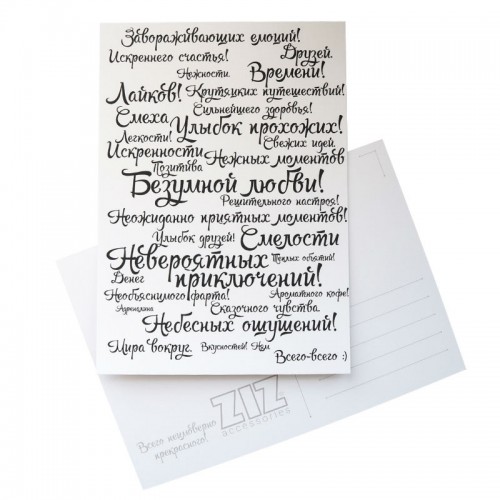 Завораживающих емоций!
Искреннего счастья! Друзей.
Нежности. Времени!
Лайков! Крутяцких путешествий!
Смеха Сильнейшего здоровья!
Улыбок прохожих!
Легкости! Свежих идей.
Искренности Нежных моментов
Позитива
Безумной любви!
Решительного настроя!
Неожиданно приятных моментов!
Улыбок друзей! Смелости
Невероятных Тёплых объятий!
Денег приключений!
Необъяснимого фарта! Ароматного кофе!
Адреналина Сказочного чувства.
Небесных ощущений!
Мира вокруг. Вкусностей! Ням
Всего-всего :)
Всего неимоверно
прекрасного!
ZIZ
accessories